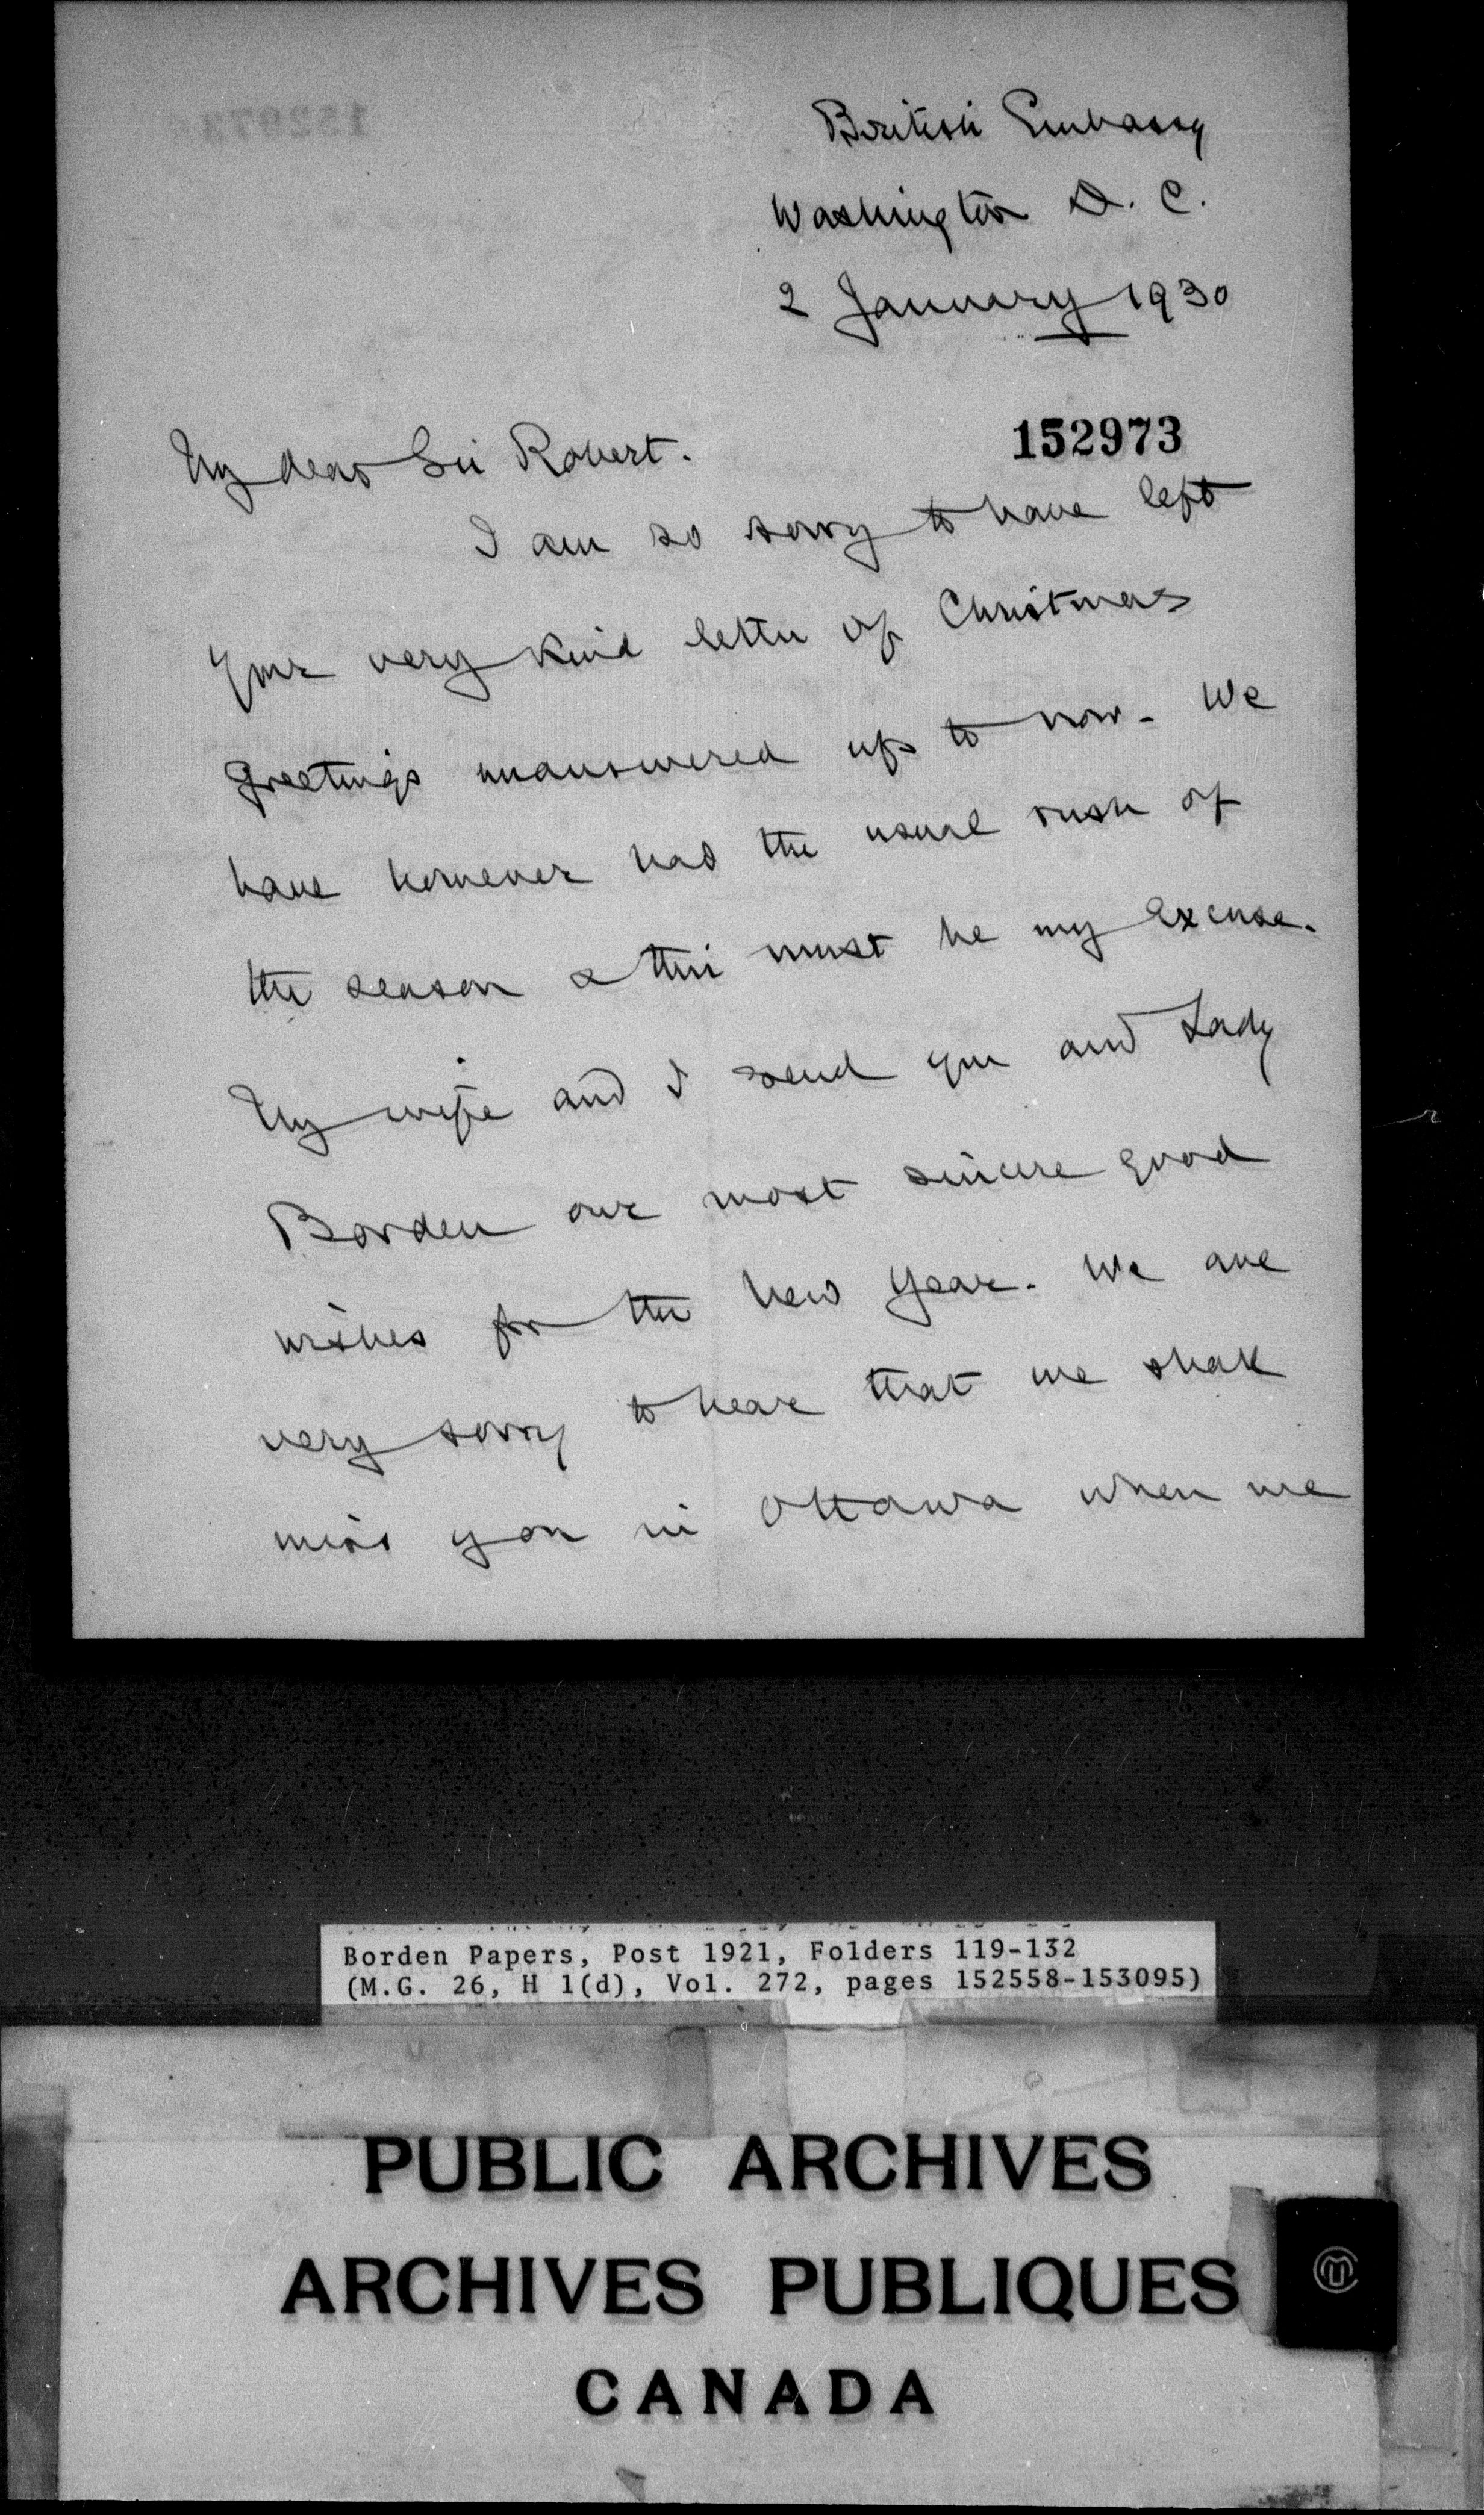 British Embassy
Washington D. C.
2 January 1930
152973
My dear Sir Robert.
I am so sorry to have left
your very kind letter of Christmas
greetings unanswered up to now. We
have however had the usual rush of
the season & this must be my excuse.
My wife and I send you and Lady
Borden our most sincere good
wishes for the New Year. We are
very sorry to hear that we shall
miss you in Ottawa when we
Borden Papers, Post 1921, Folders 119-132
(M.G. 26, H 1(d), Vol. 272, pages 152558-153095)
PUBLIC ARCHIVES
ARCHIVES PUBLIQUES
CANADA